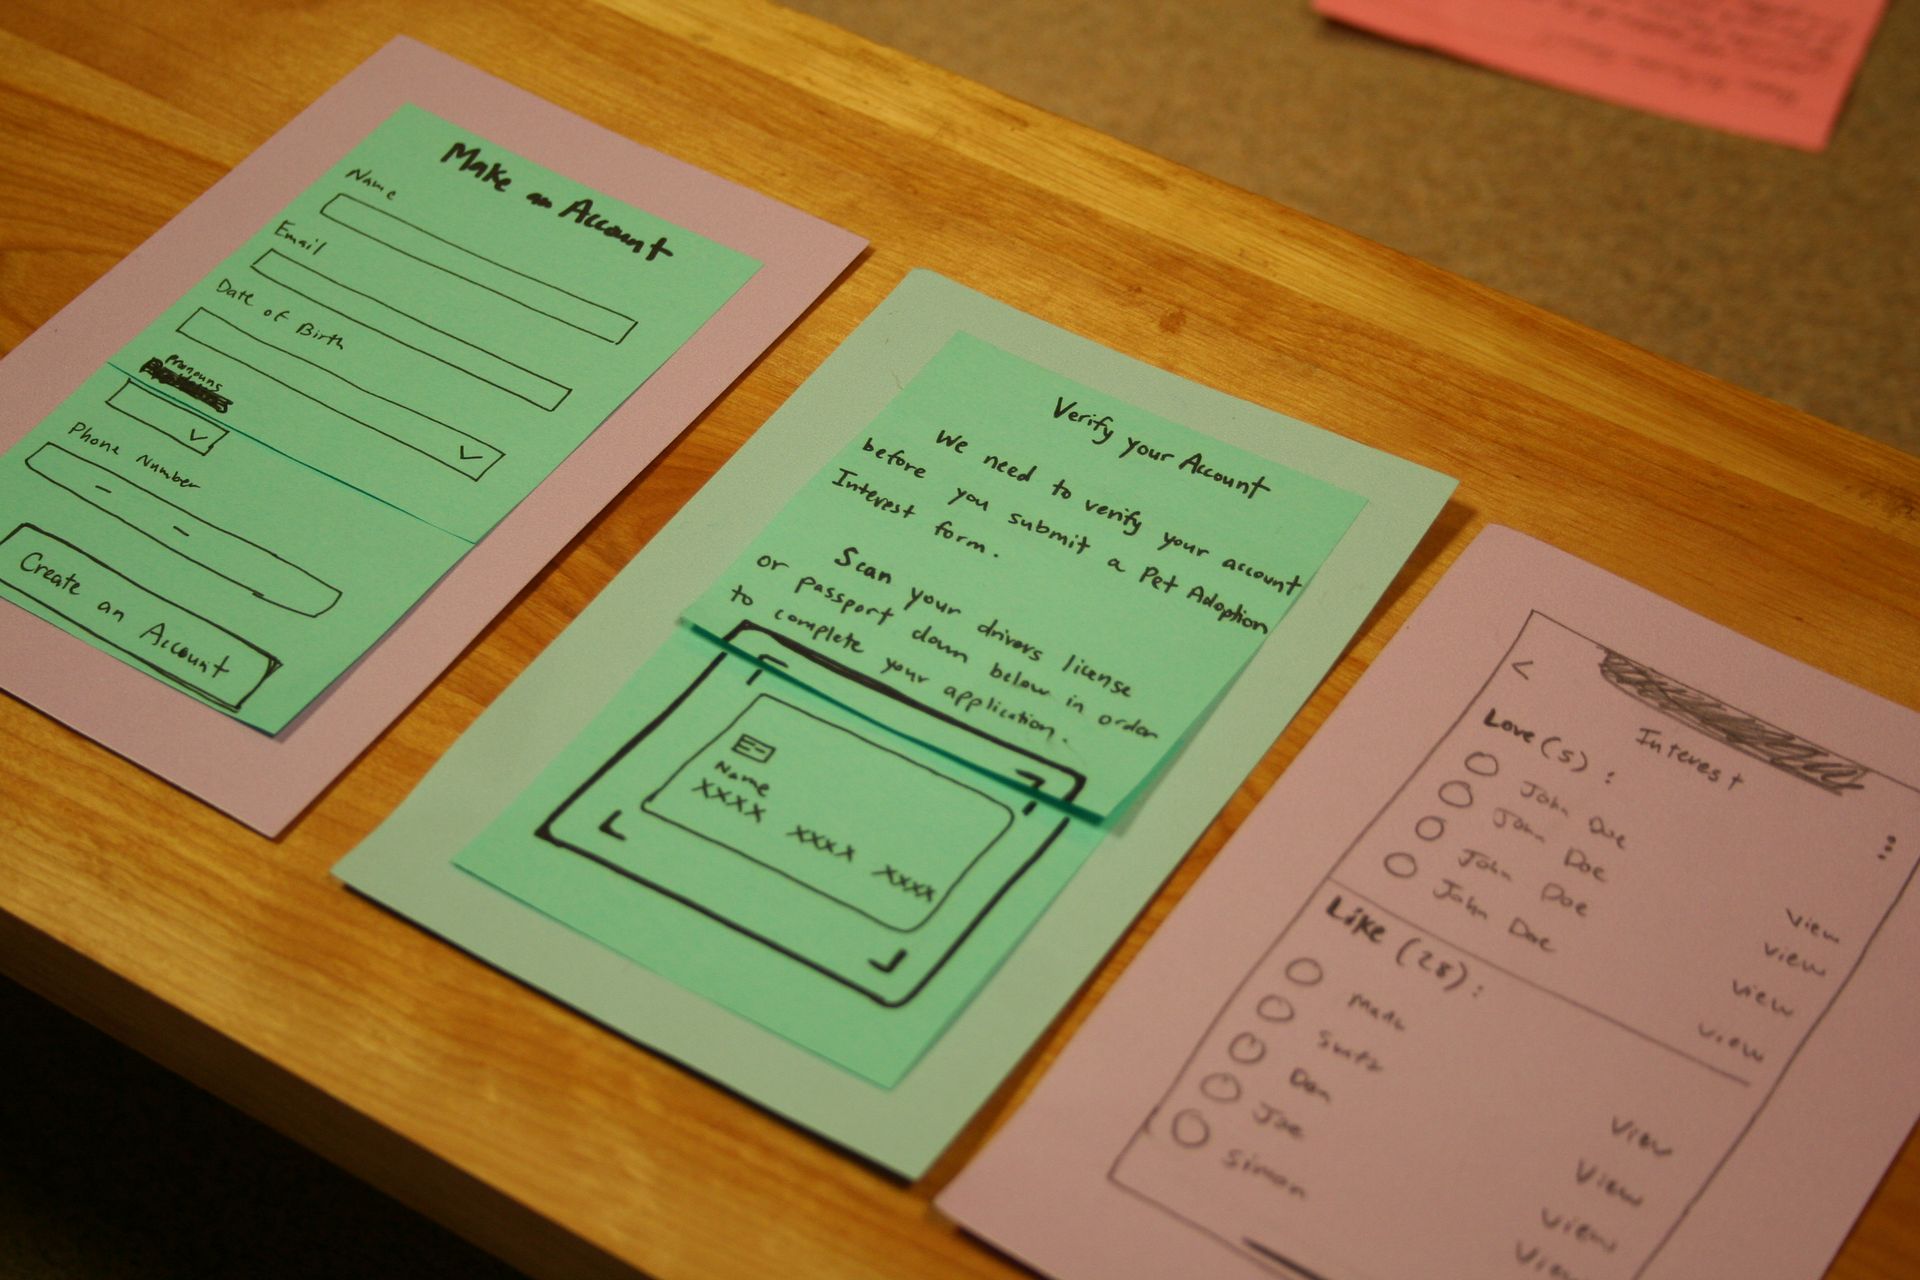 Make an Account
Name
Email
Date of Birth
Pronouns
Phone Number
Create an Account
Verify your Account
We need to verify your account
before you submit a Pet Adoption
Interest form.
Scan your drivers license
or passport down below in order
to complete your application.
Name
XXXX XXXX XXXX
<
Interest
Love (5) :
John Doe view
John Doe view
John Doe view
John Doe view
Like (28) :
View
View
Dan View
Joe View
Simon